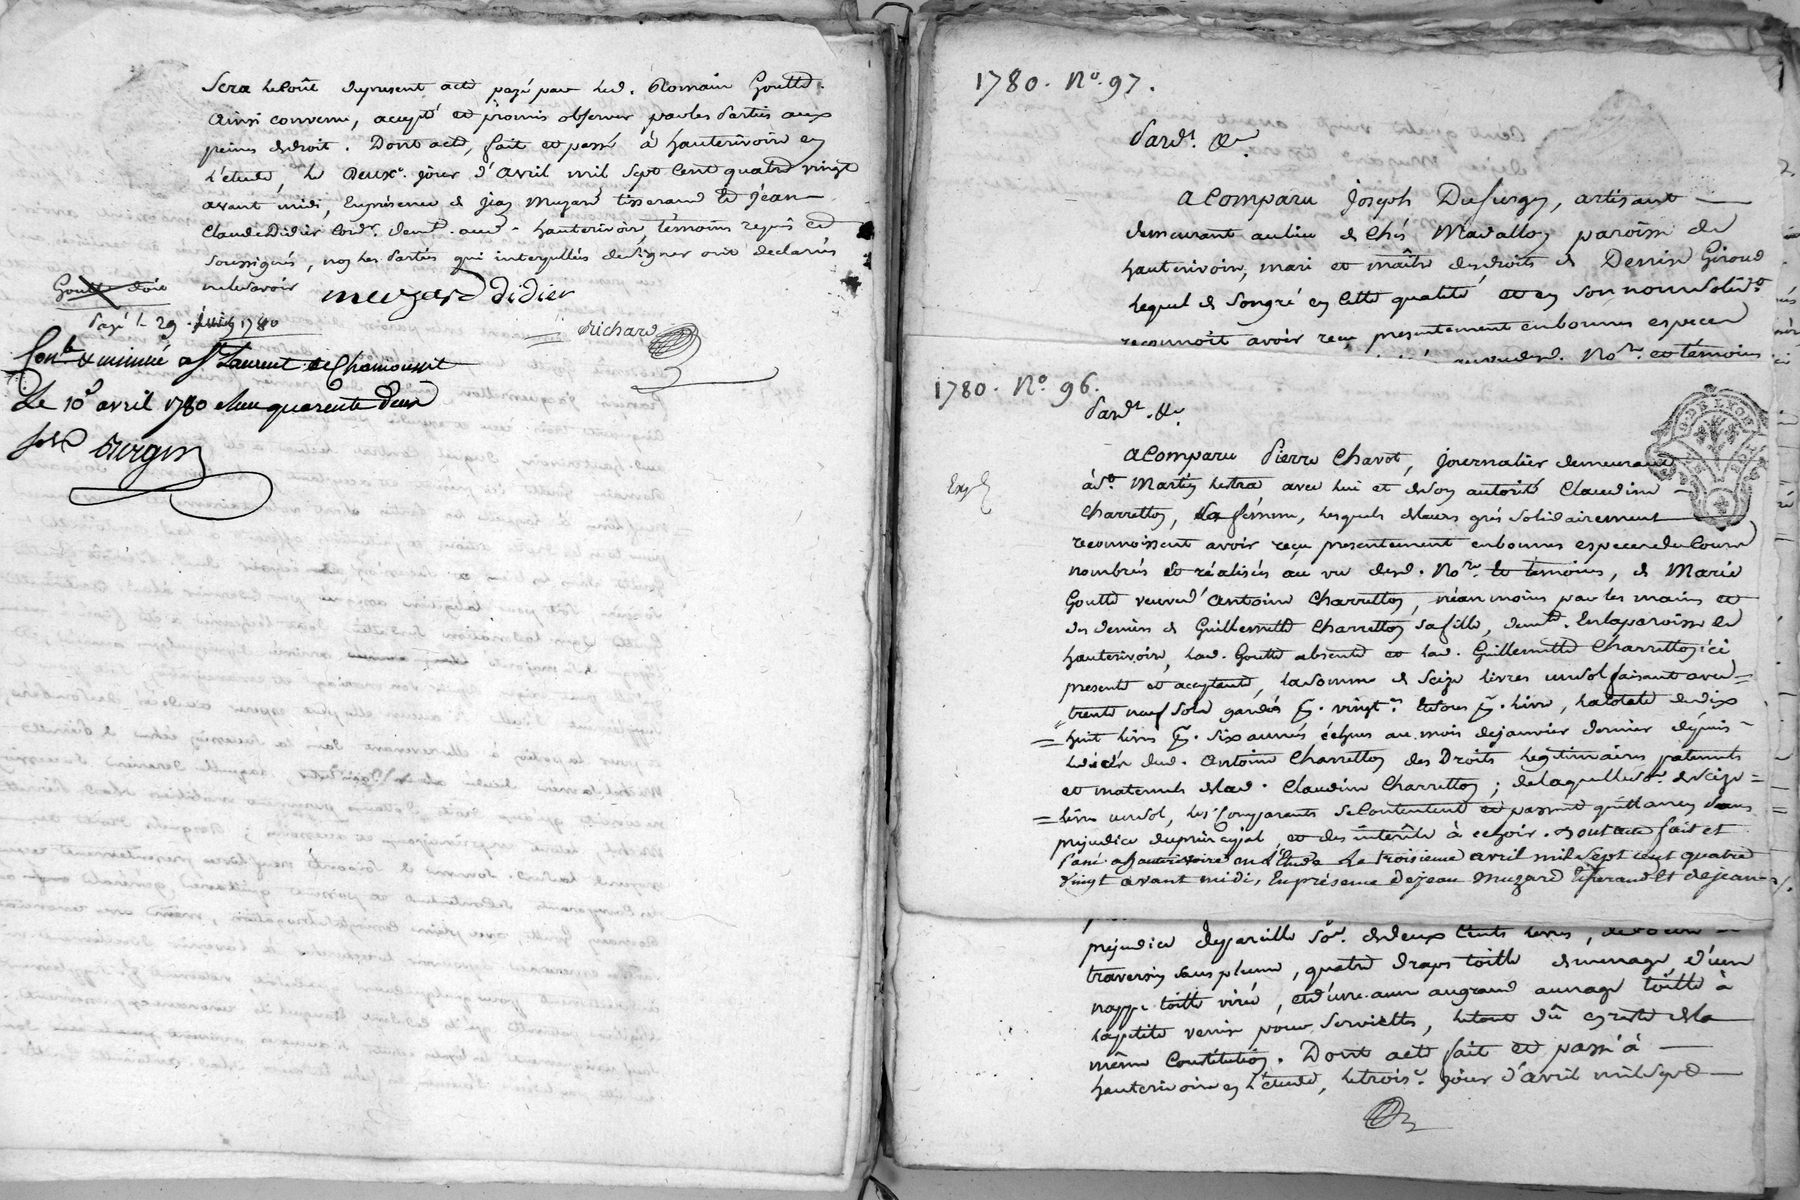 Sera le coût du present acte payé par led. Romain Goutte.
Ainsi convenu, accepté et promis observer par les Parties aux
peines de droit. Dont acte, fait et passé à hauterivoire en
l'étude, le Deuxe. jour d'avril mil sept cent quatre vingt
avant midi, En présence de Jean Muzard tisserand et Jean
Claude Didier Cordr. demt. aud. hauterivoire, témoins requis et
soussignés, non les Parties qui interpellés de signer ont déclarés
ne le savoir
Muzard Didier
Richard
Goutte doit
Payé le 29. 1780
Conlé & minuté a St Laurent de Chamousset
Le 10e avril 1780 quarente deux
1780. No. 97.
Pardt. &c.
A Comparu Joseph Dufurgey, artisant
demeurant au lieu de Chés Madallon paroisse de
hauterivoire, mari et maître des droits de Denise Giroud
lequel de son gré en cette qualité et en son nom solide.
reconnoit avoir reçu presentement en bonnes especes
No.re et témoins
1780. No. 96.
Pardt. &c.
A Comparu Pierre Chavot, journalier demeurant
à St. Martin Lestra avec lui et de son autorité Claudine
Charretton, sa femme, lesquels de leurs grés solidairement
reconnoissent avoir reçu presentement en bonnes especes du Cours
nombrés et réalisés au vu desd. No.re et témoins, de Marie
Goutte veuve d'Antoine Charretton, néanmoins par les mains et
des deniers de Guillemette Charretton sa fille, demte. En la paroisse de
hauterivoire, lad. Goutte absente et lad. Guillemette Charretton ici
presente et acceptante, la somme de seize livres un sol faisant avec
trente neuf sols gardés p. vingte. et sous p. livre, la totale de dix
huit livres p. six années échues au mois de janvier dernier depuis
le décès dud. Antoine Charretton des Droits legitimaires paternels
et maternels de lad. Claudine Charretton; de laquelle so.e de seize
livres un sol, les Comparants se Contentent et passent quittance sans
prejudice du principal, et des interêts à echoir. Dont acte fait et
passé a hauterivoire en l'Etude Le troisieme avril mil sept cent quatre
vingt avant midi, En présence de jean Muzard tisserand et de jean
Exp.
prejudice de pareille so.e de deux cents livres,
traversin sans plume, quatre draps toille de menage, d'une
nappe toille virée, et d'une aune au grand aunage toille à
la petite venise pour serviettes, le tout dû en reste de la
même Constitution. Dont acte fait et passé à
hauterivoire en l'étude, le trois.e jour d'avril mil sept